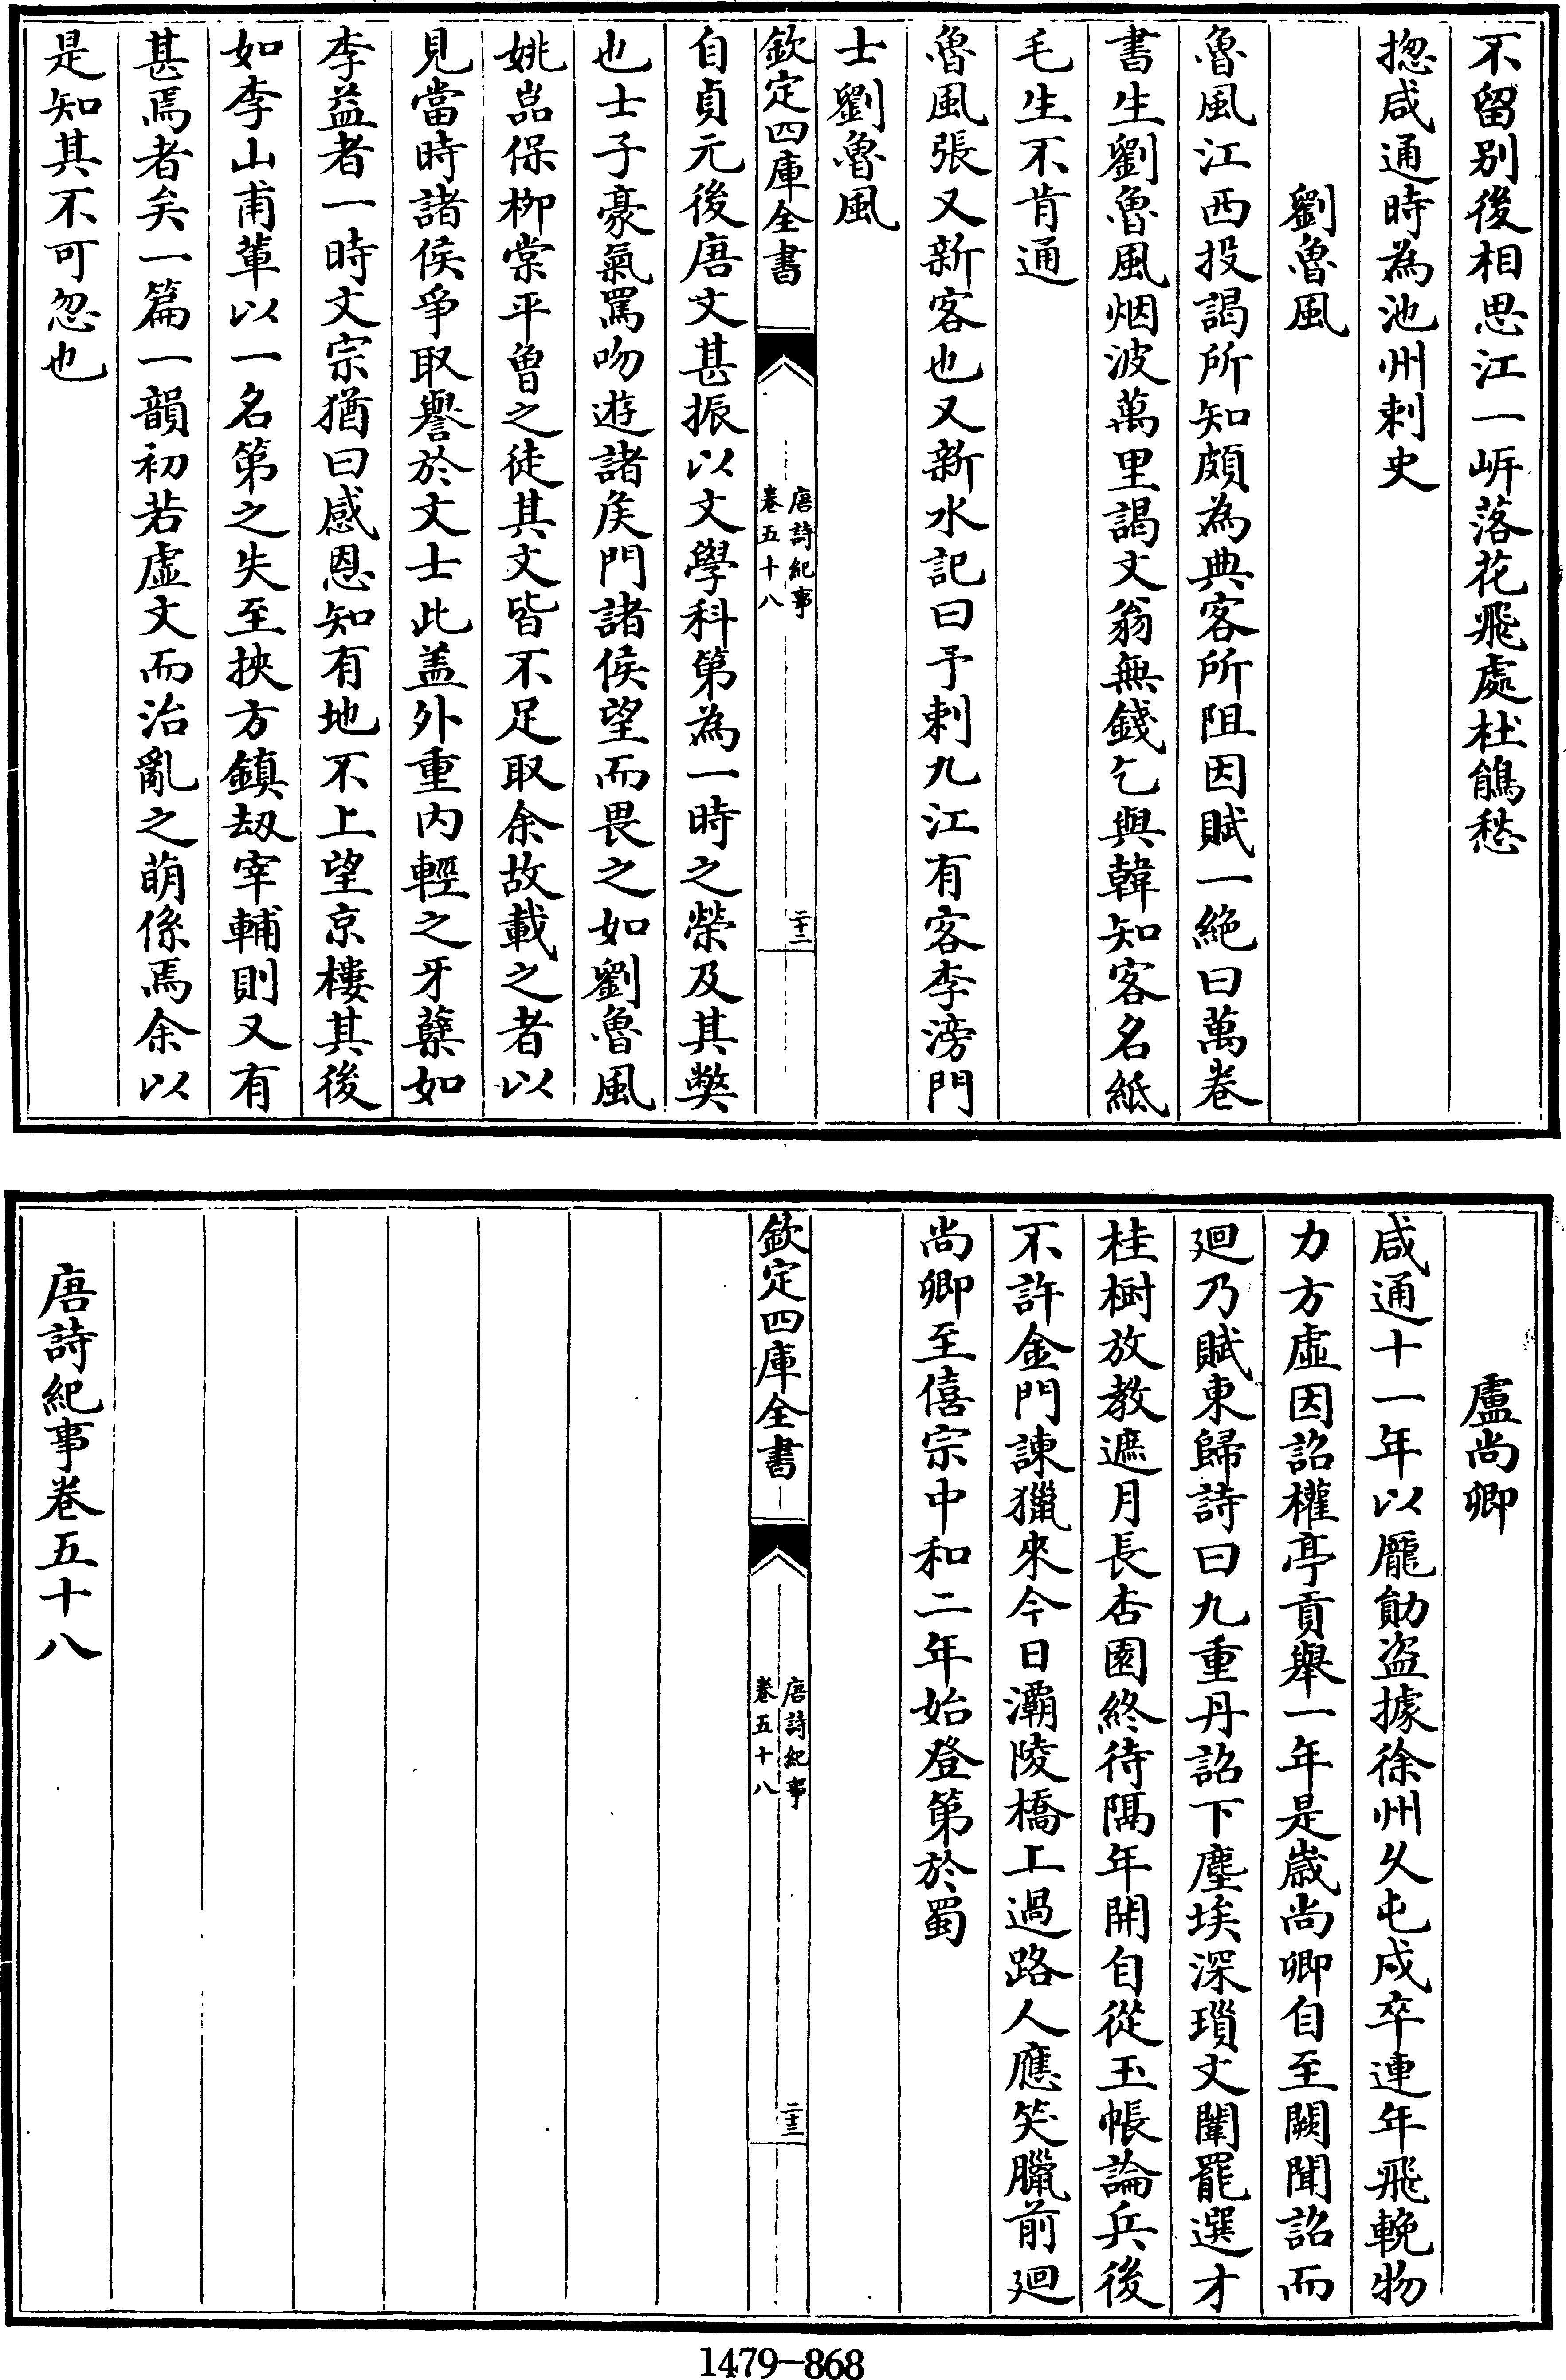 不留别後相思江一岍落花飛處杜鵑愁
揔咸通時為池州刺史
劉魯風
魯風江西投謁所知頗為典客所阻因賦一絶曰萬卷
書生劉魯風烟波萬里謁文翁無錢乞與韓知客名紙
毛生不肯通
魯風張又新客也又新水記曰予刺九江有客李滂門
士劉魯風
欽定四庫全書
唐詩紀事
卷五十八
二十二
自貞元後唐文甚振以文學科第為一時之榮及其弊
也士子豪氣罵吻遊諸侯門諸侯望而畏之如劉魯風
姚嵓保柳棠平曾之徒其文皆不足取余故載之者以
見當時諸侯爭取譽於文士此盖外重内輕之牙蘖如
李益者一時文宗猶曰感恩知有地不上望京樓其後
如李山甫軰以一名第之失至挾方鎮刼宰輔則又有
甚焉者矣一篇一韻初若虚文而治亂之萌係焉余以
是知其不可忽也
盧尚卿
咸通十一年以龎勛盗據徐州久屯戍卒連年飛輓物
力方虚因詔權亭貢舉一年是歲尚卿自至闕聞詔而
廻乃賦東歸詩曰九重丹詔下塵埃深瑣文闈罷選才
桂樹放教遮月長杏園終待隔年開自從玉帳論兵後
不許金門諫獵來今日灞陵橋上過路人應笑臘前廻
尚卿至僖宗中和二年始登第於蜀
欽定四庫全書
唐詩紀事
卷五十八
二十三
唐詩紀事卷五十八
1479-868